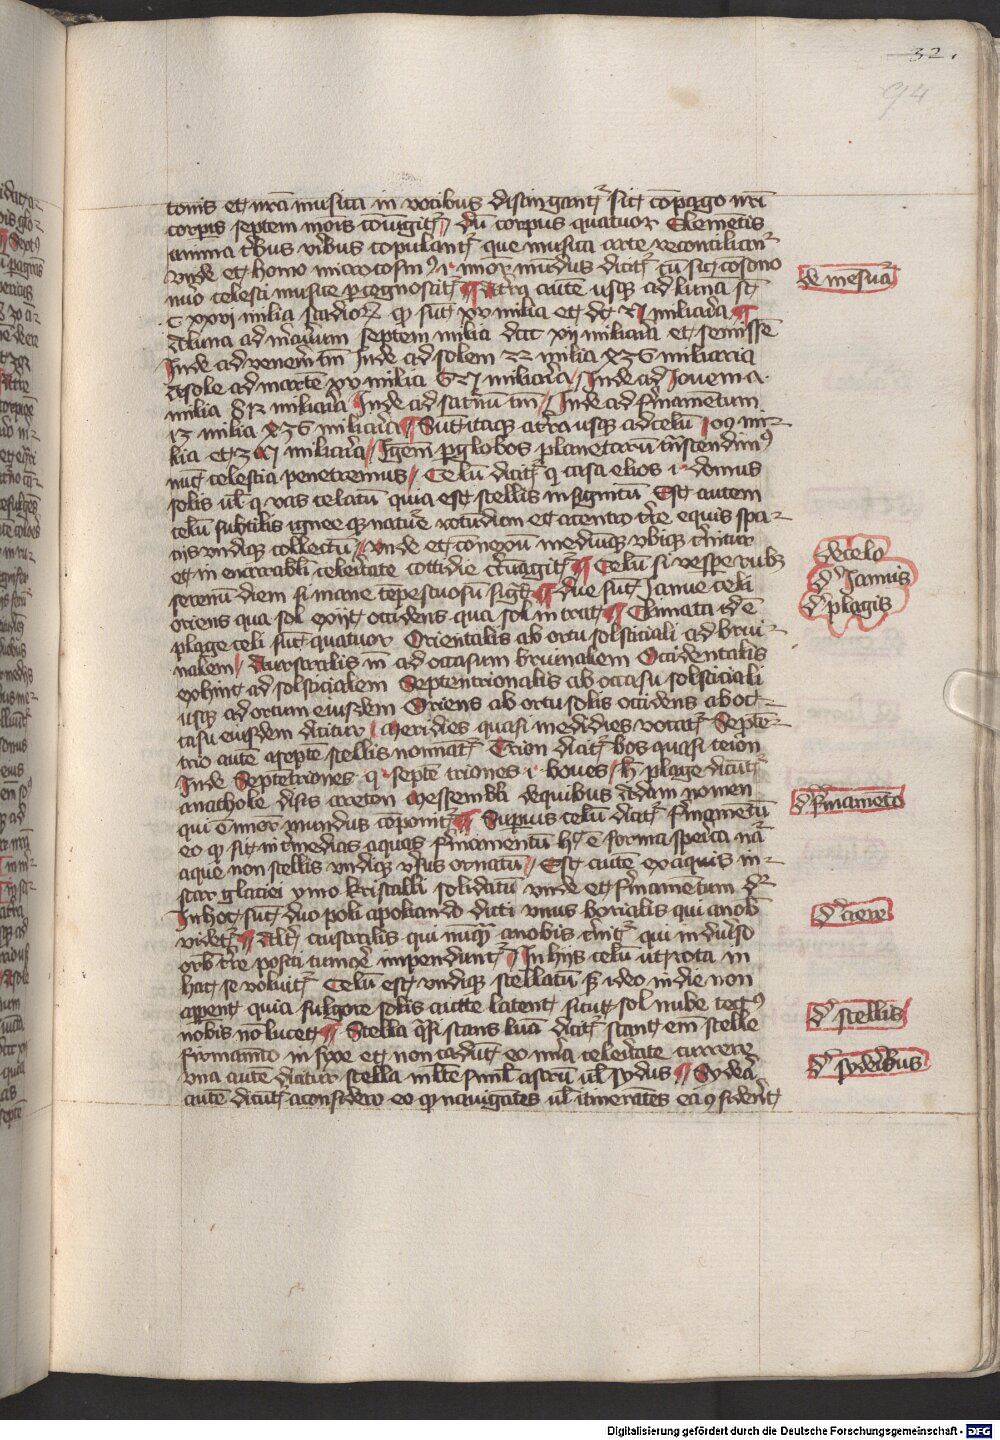 32.
94
tonis et nr̄a musica in vocibus distingantʳ sic cōpago nrī
corpis septem mōis cōiungitʳ dū corpus quatuor Elemētis
anima tribus viribus copulantʳ que musica arte reconcilianʳ
vnde et homo microcosmꝰ i. minor mūdus dicitʳ cū sic cōsono
nūo celesti musice ꝑcognoscitʳ ¶ A tr̄a autē usqꝫ ad lunā st̄
C xxvi milia stadioꝝ qď sūt xv milia et
A luna ad m̄curium septem milia dccc xij miliaria et semissē
Inde ad venerem tm̄ Inde ad solem
A sole ad martē xv milia miliaria Inde ad Iouem a.
milia miliaria Inde ad saturnū tm̄ Inde ad firmamentum
milia miliaria ¶ Sūt itaqꝫ a terra usqꝫ ad celū
lia et miliaria Igr̄ em̄ ꝑ globos planetarū trāscendimꝰ
nūc celestia penetremus Celū dicitʳ qͣ casa elios i. domus
solis ul̄ qͣ vas celatū quia est stellis insignitū Est autem
celū subtilis ignee qꝫ nature rotūdum et a centro t̄re equis spa-
cijs vndiqꝫ collectū vnde et conexū mediūqꝫ vbiqꝫ cernitur
et in enerrabili celeritate cottidie circūagitʳ ¶ Celū si vespe rubꝫ
serenū diem si mane tēpestuosū signat ¶ Due sūt Ianue celi
oriens qua sol exijt occidens qua sol intrat ¶ Climata id ē
plage celi sūt quatuor Orientalis ab ortu solsticiali ad brui-
nalem Australis in ad occasum bruinalem Occidentalis
exhinc ad solsticialem Septentrionalis ab occasu solsticiali
usqꝫ ad ortum eiusdem Oriens ab ortu solis occidens ab oc-
casu eiusdem dicitur Meridies quasi medidies vocatʳ Septē-
trio autē a septē stellis nominatʳ Trion dicitʳ bos quasi terion
Inde Septētriones qͣ septē triones i. boues h̄ plage dicūtʳ
anathole disis arcton messembri de quibus Adam nomen
qui ē minor mundus cōponitʳ ¶ Supius celū dicitʳ firmamētū
eo qď sit int̄ medias aquas firmamentū hᵒ ē forma sperica nā
aque non stellis vndiqꝫ vsus ornatū Est autē ex aquis in-
star glaciei ymo kristalli solidatū vnde et firmamentum dʳ
In hoc sūt duo poli a poliando dicti vnus borialis qui a nob̄
videtʳ ¶ Altʳ australis qui nūqͣ a nobis cernitʳ qui in diuerso
orb̄ t̄re positi tumore impendunturʳ In hijs celū ut rota in
hac se voluitʳ Celū est vndiqꝫ stellatū sꝫ ideo in die non
apparent quia fulgore solis aucte latent sicut sol nube tectꝰ
nobis nō lucet ¶ Stella qͣsi stans luna dicitʳ stant em̄ stelle
firmamēto in fixe et non cadūt eo mira celeritate currere
vna autē dicitur stella multe simul astrū ul̄ sydus ¶ Sydera
autē dicūtʳ a considero eo qď nauigātes ul̄ itinerātes ea ꝯsiderēt
de mesura
de celo
dᵉ Ianuis
dᵉ plagis
dᵉ firmamēto
dᵉ aere
dᵉ stellis
dᵉ syderibus
Digitalisierung gefördert durch die Deutsche Forschungsgemeinschaft - DFG